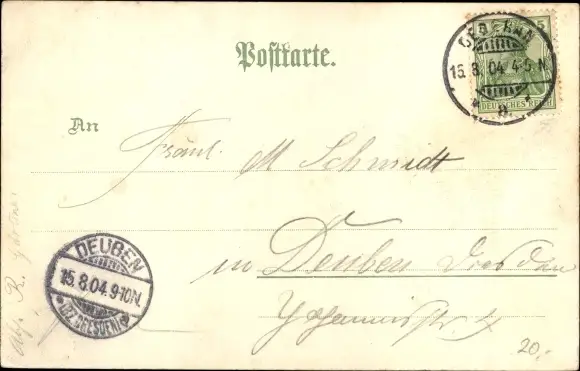 Postkarte.
5
15.8.04.4-5.N.
a
DEUTSCHES REICH
An
Fräul. M Schmidt
in Deuben Dresden
Johannisstr. 4
DEUBEN
15.8.04.9-10N.
*(BZ.DRESDEN)*
Abs. R.
20.-